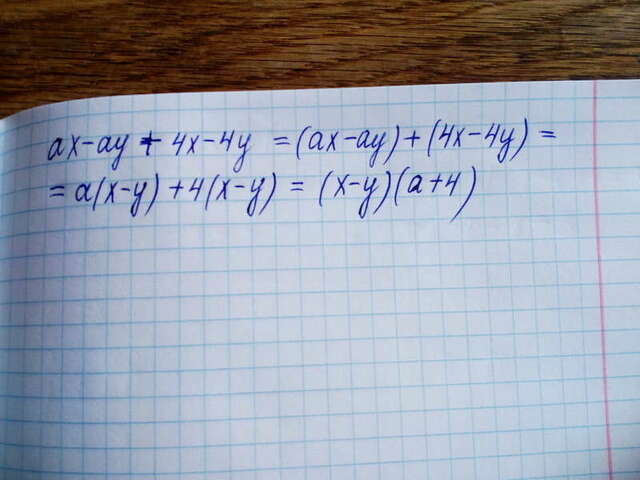 ax-ay + 4x-4y = (ax-ay)+(4x-4y) =
= a(x-y)+4(x-y) = (x-y)(a+4)